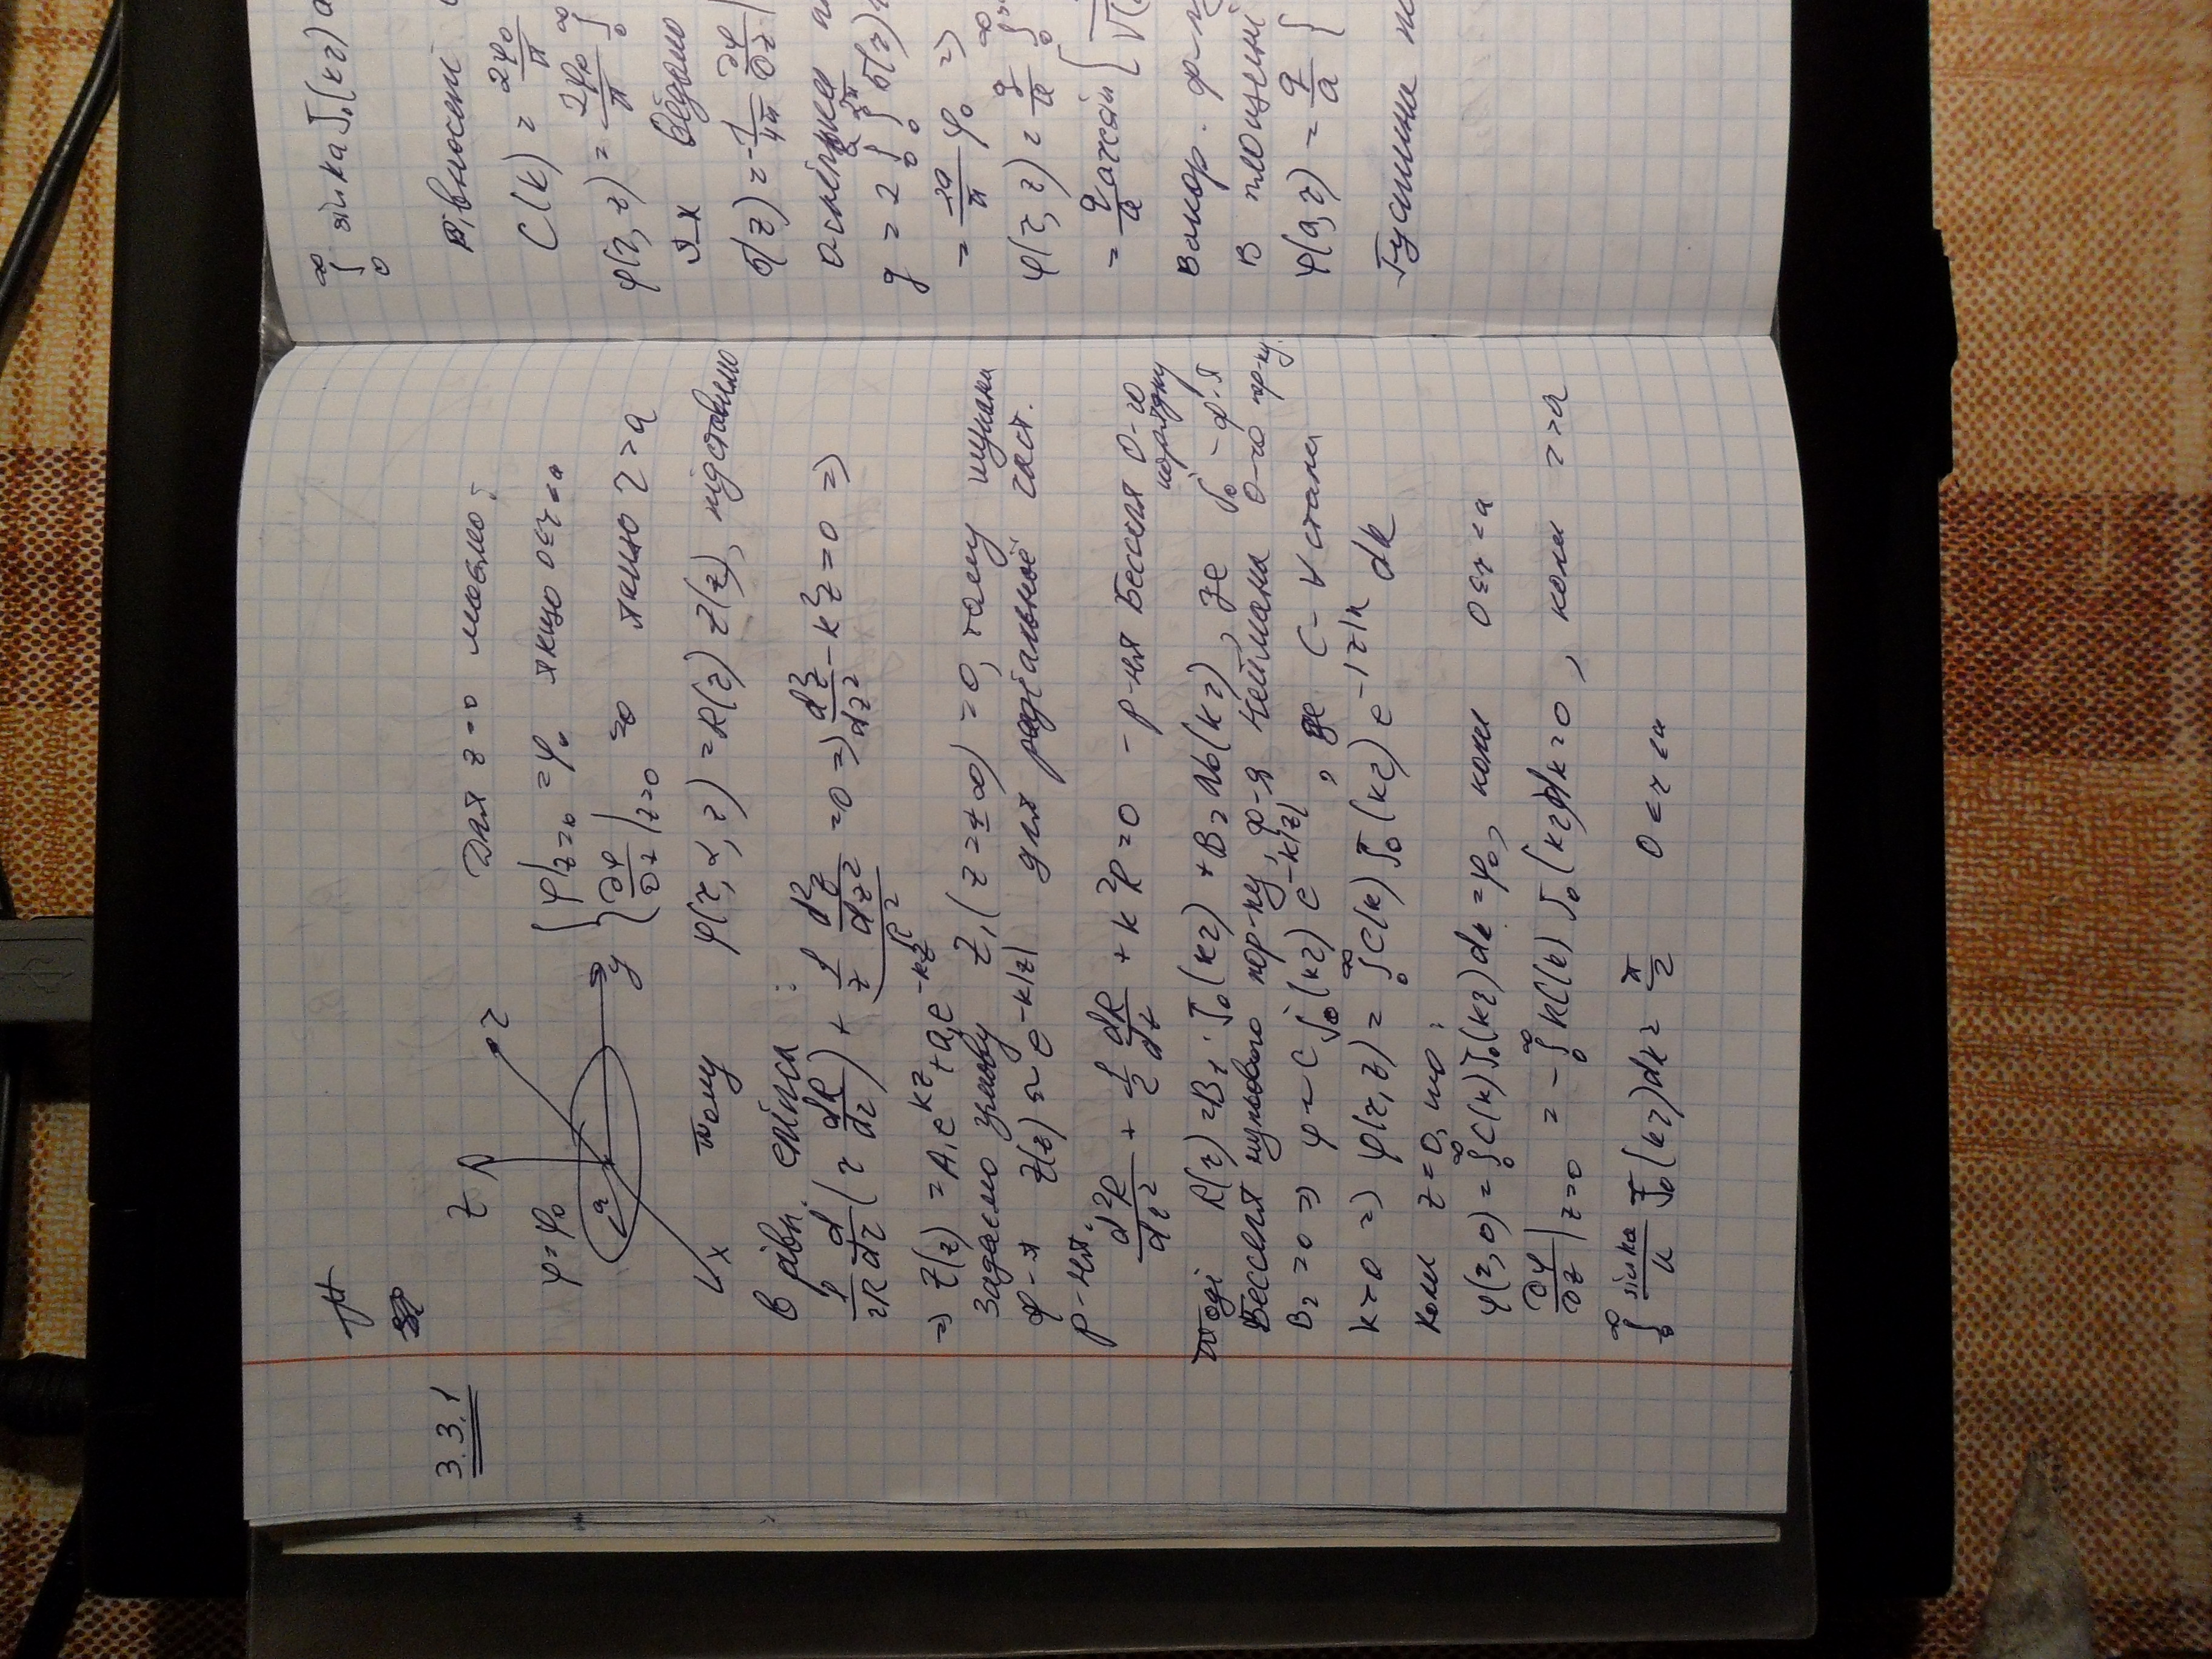 3.3.1
z
φ=φ₀
a
y
x
r
Для z=0 маємо:
{ φ|z=0 = φ₀ якщо 0≤r<a
{ ∂φ/∂z |z=0 =0 якщо r>a
тому φ(r,α,z) = R(r) Z(z), підставимо
в рівн.
1/(rR) d/dr (r dR/dr) + 1/Z d²Z/dz² =0 => d²Z/dz² - k²Z=0 =>
k²
=> Z(z) = A₁e^kz + a₂e^-kz
Задаємо умову Z,(z=±∞)=0, тому шукана
ф-я Z(z) ~ e^-k|z| для радіальної част.
р-ня:
d²R/dr² + 1/r dR/dr + k²R=0 - р-ня Бесселя 0-го порядку
тоді R(r)=B₁·J₀(kr) + B₂N₀(kr), де J₀-ф-я
Бесселя нульового пор-ку, ф-я Неймана 0-го пор-ку.
B₂=0 => φ~C J₀(kr) e^-k|z|, де C-∀ стала
k>0 => φ(r,z) = ∫₀^∞ C(k) J₀(kr) e^-|z|k dk
Коли z=0, то:
φ(r,0) = ∫₀^∞ C(k)J₀(kr)dk=φ₀, коли 0≤r<a
∂φ/∂z |z=0 = -∫₀^∞ kC(k) J₀(kr)dk=0, коли r>a
∫₀^∞ sin ka/k J₀(kr)dk = π/2 0≤r<a
∫₀^∞ sin ka J₀(kr)d
Рівності
C(k) = 2φ₀/π
φ(r,z) = 2φ₀/π ∫₀^∞
Як відомо
σ(r) = -1/4π ∂φ/∂z |
оскільки
q = 2 ∫₀^a ∫₀^2π σ(r)
= 2a/π φ₀ =>
φ(r,z) = q/a ∫₀^∞
= q/a arcsin {
Викор. ф-
В площині
= q/a {
Густина